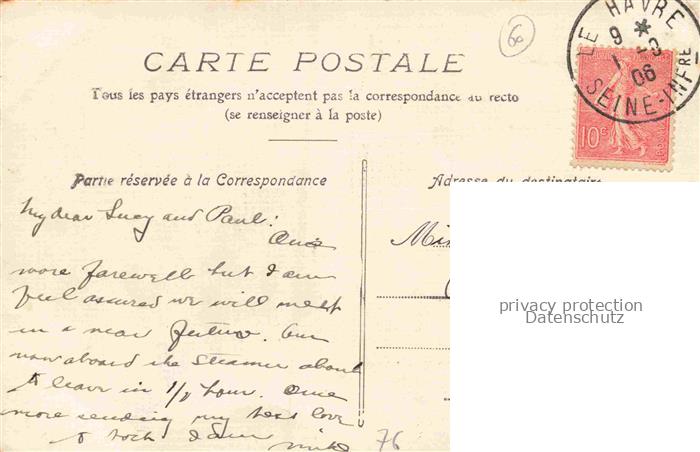 60
LE HAVRE
9 * -9
1 06
SEINE-INFRE
10c
CARTE POSTALE
Tous les pays étrangers n'acceptent pas la correspondance au recto
(se renseigner à la poste)
Partie réservée à la Correspondance
Adresse du destinataire
My dear Lucy and Paul!
Once
more farewell but I am
feel assured we will meet
in a near future. Am
now aboard the steamer about
to leave in 1/2 hour. Once
more sending my best love
to both I am
76
privacy protection
Datenschutz